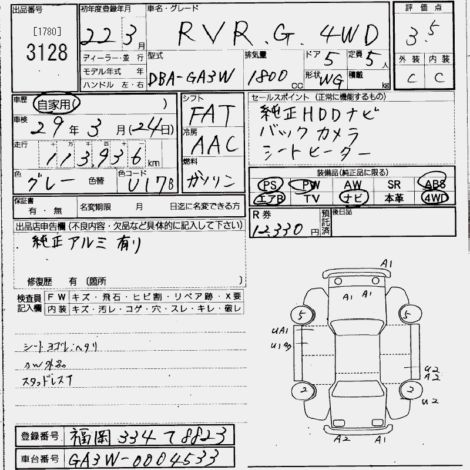 出品番号 [1780] 3128
初年度登録年月 22年 3月
車名・グレード RVR.G. 4WD
評価点 3.5
ディーラー・並行
モデル年式 年
ハンドル 左・右
型式 DBA-GA3W
排気量 1800 CC
ドア 5
定員 5人
形状 WG
積載 kg
外装 C
内装 C
車歴 自家用
車検 29年 3月(24日)
走行 113,936 km
シフト FAT
冷房 AAC
燃料 ガソリン
色 グレー 色替
色コード U17B
セールスポイント(正常に機能するもの)
純正HDDナビ
バックカメラ
シートヒーター
装備品(純正品に限る)
PS PW AW SR ABS
エアB TV ナビ 本革 4WD
保証書 有・無
名変期限 月 日迄に名変できる方
R券 12,330円
預託済
後日品
出品店申告欄(不良内容・欠品など具体的に記入して下さい)
純正アルミ有り
修復歴 有(箇所 )
検査員記入欄
FW キズ・飛石・ヒビ割・リペア跡・X要
内装 キズ・汚レ・コゲ・穴・スレ・キレ・破レ
シートヨゴレ・ヘタリ
スタッドレス
A1
A1 A1
5 5
UA1
U2
A2
2 2
U2
A2 A1
登録番号 福岡 334 て 8823
車台番号 GA3W-0004533